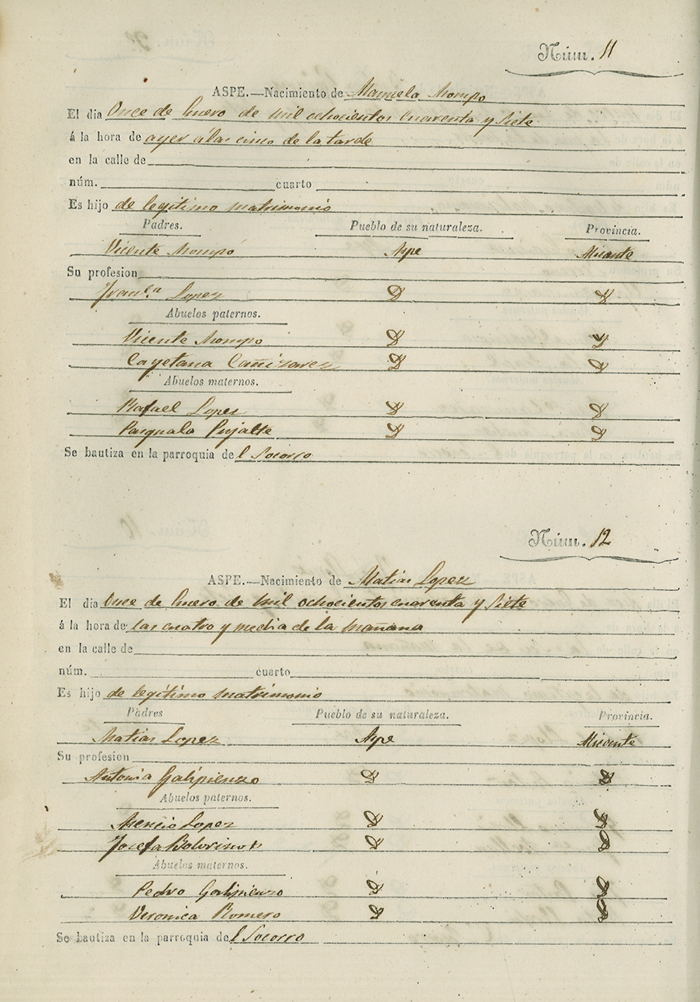 Núm. 11
ASPE.—Nacimiento de Manuela Mompo
El dia Once de Enero de mil ochocientos cuarenta y siete
á la hora de ayer a las cinco de la tarde
en la calle de
núm. cuarto
Es hijo de legitimo matrimonio
Padres. Pueblo de su naturaleza. Provincia.
Vicente Mompo Aspe Alicante
Su profesion
Fran.ca Lopez D D
Abuelos paternos.
Vicente Mompo D D
Cayetana Cañizares D D
Abuelos maternos.
Rafael Lopez D D
Pasquala Pujalte D D
Se bautiza en la parroquia de l Socorro
Núm. 12
ASPE.—Nacimiento de Matias Lopez
El dia Once de Enero de mil ochocientos cuarenta y siete
á la hora de las cuatro y media de la mañana
en la calle de
núm. cuarto
Es hijo de legitimo matrimonio
Padres Pueblo de su naturaleza. Provincia.
Matias Lopez Aspe Alicante
Su profesion
Antonia Galipienzo D D
Abuelos paternos.
Lopez D D
Josefa D D
Abuelos maternos.
Pedro Galipienzo D D
Veronica Romero D D
Se bautiza en la parroquia de l Socorro